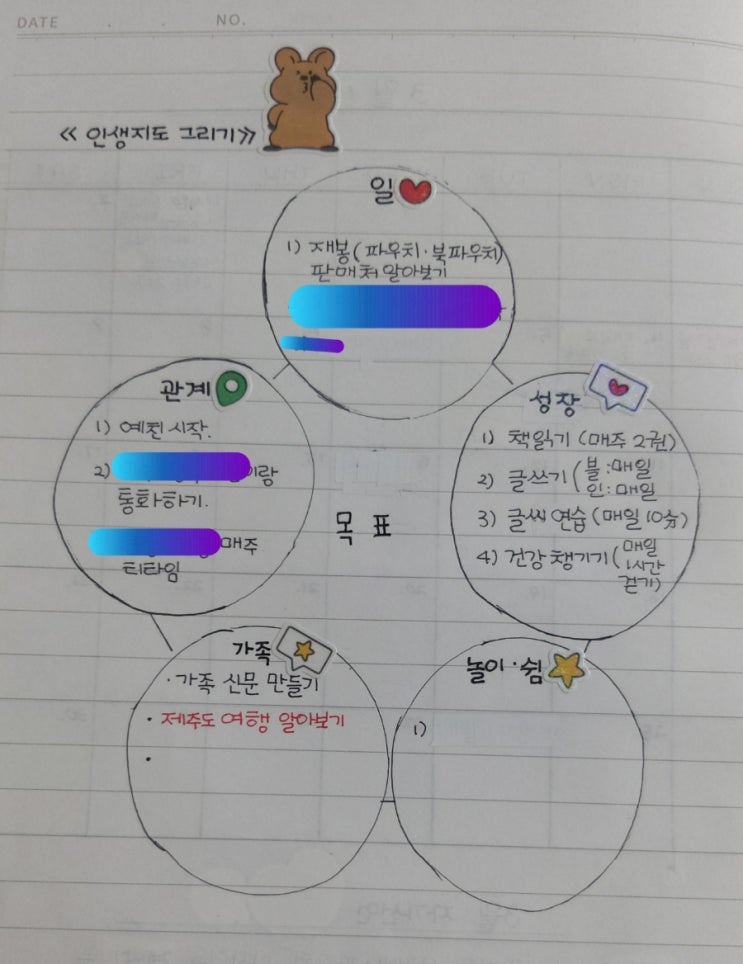 DATE . . NO.
<< 인생지도 그리기 >>
일
1) 재봉(파우치·북파우치)
판매처 알아보기
관계
1) 예퀸 시작.
2)
이랑
통화하기.
매주
티타임
성장
1) 책읽기 (매주 2권)
2) 글쓰기 (블:매일
인:매일
3) 글씨 연습 (매일 10분)
4) 건강 챙기기 (매일
1시간
걷기)
목표
가족
· 가족 신문 만들기
· 제주도 여행 알아보기
·
놀이·쉼
1)